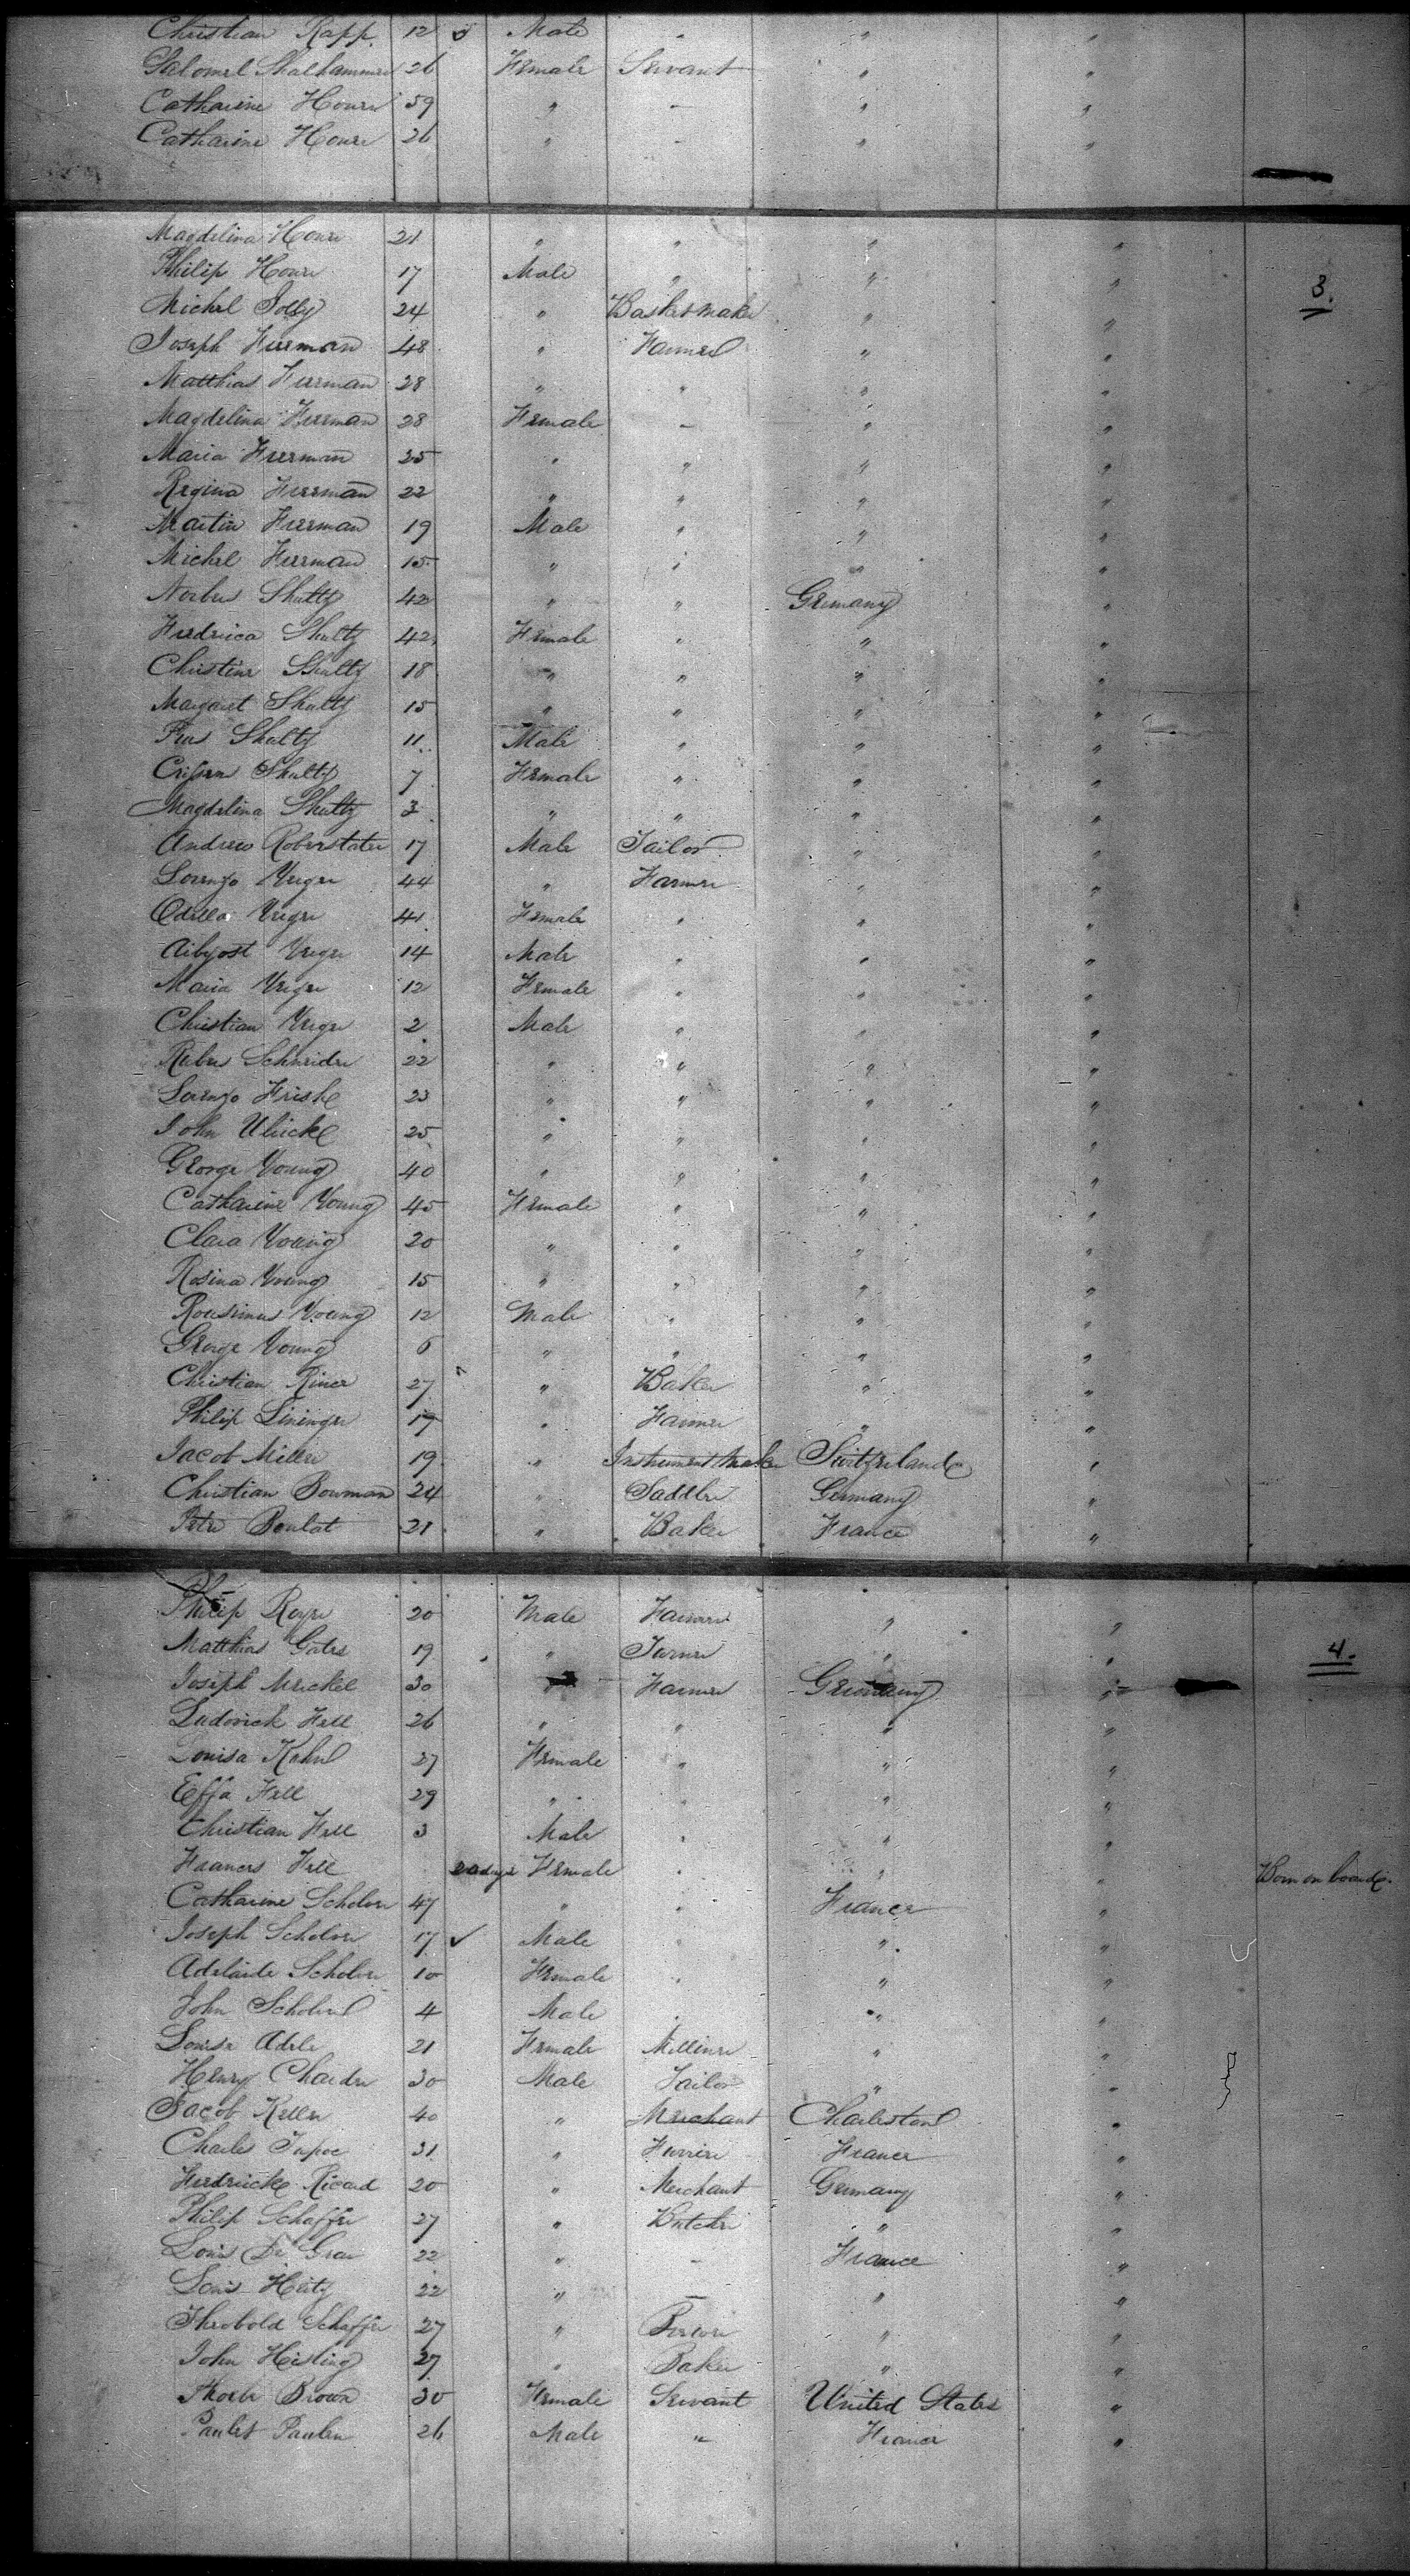 Christian Rapp 12 Male " "
Salomel Shalhammer 26 Female Servant " "
Catharine Hourr 59 " - " "
Catharine Hourr 26 " - " "
Magdelina Hourr 21 " " " "
Philip Hourr 17 Male " " " 3.
Michel Solby 24 " Basketmaker " "
Joseph Herman 48 " Farmer " "
Matthias Herman 28 " " " "
Magdelina Herman 28 Female - " "
Maria Herman 25 " " " "
Regina Herman 22 " " " "
Martin Herman 19 Male " " "
Michel Herman 15 " " " "
Shultz 42 " " Germany "
Fredrica Shultz 42 Female " " "
Christine Shultz 18 " " " "
Margaret Shultz 15 " " " "
Shultz 11 Male " " "
Shultz 7 Female " " "
Magdelina Shultz 3 " " " "
Andrew Roberstater 17 Male Tailor " "
Lorenzo Yeiger 44 " Farmer " "
Odilla Yeiger 41 Female " " "
Yeiger 14 Male " " "
Maria Yeiger 12 Female " " "
Christian Yeiger 2 Male " " "
Schneider 22 " " " "
Lorenzo Frishe 23 " " " "
John Ulricke 25 " " " "
George Young 40 " " " "
Catharine Young 45 Female " " "
Clara Young 20 " " " "
Rosina Young 15 " " " "
Young 12 Male " " "
George Young 6 " " " "
Christian Riner 27 " Baker " "
Philip Lininger 17 " Farmer " "
Jacob Miller 19 " Instrument Maker Switzerland "
Christian Bowman 24 " Saddler Germany "
Peter Boulat 21 " Baker France "
Philip Royer 20 Male Farmer " "
Matthias Gates 19 " Turner " " 4.
Joseph Merckel 30 " Farmer Germany "
Ludovick Fell 26 " " " "
Louisa Kahn 27 Female " " "
Effa Fell 29 " " " "
Christian Fell 3 Male " " "
Frances Fell 20 days Female " " " Born on board.
Catharine Scholer 47 " " France "
Joseph Scholer 17 Male " " "
Adelaide Scholer 10 Female " " "
John Scholer 4 Male " " "
Louisa Adele 21 Female Milliner " "
Henry 30 Male Tailor " "
Jacob Keller 40 " Merchant Charleston "
Charles 31 " Furrier France "
Fredricke Ricard 20 " Merchant Germany "
Philip Schaffer 27 " Butcher " "
Louis De Grau 22 " - France "
Louis Heitz 22 " - " "
Theobold Schaffer 27 " Brewer " "
John Heisling 27 " Baker " "
Phoebe Brown 30 Female Servant United States "
Paulet Paulin 26 Male " France "